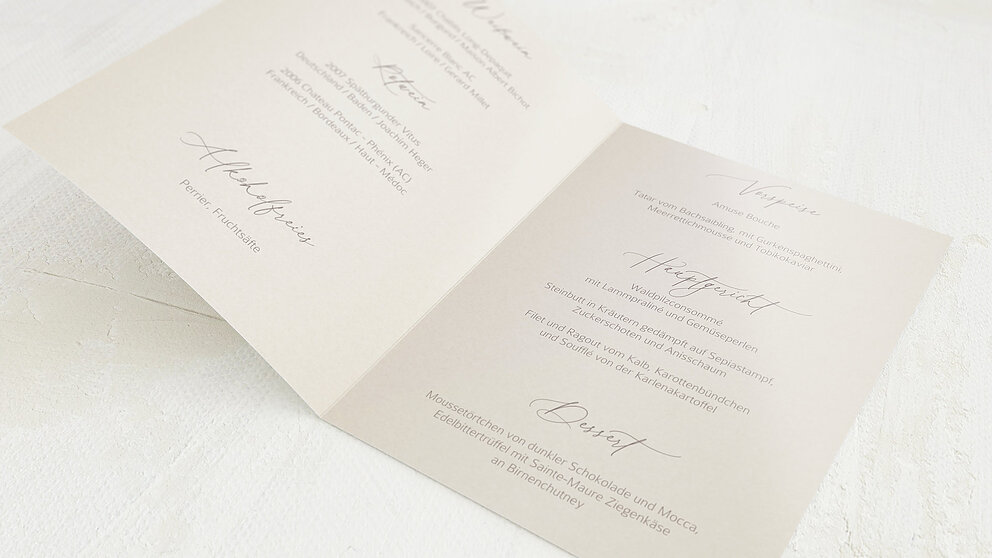 Weißwein
Frankreich / Burgund / Maison Albert Bichot
Sancerre Blanc, AC
Frankreich / Loire / Gerard Millet
Rotwein
2007 Spätburgunder Vitus
Deutschland / Baden / Joachim Heger
2006 Chateau Pontac - Phénix (AC)
Frankreich / Bordeaux / Haut - Médoc
Alkoholfreies
Perrier, Fruchtsäfte
Vorspeise
Amuse Bouche
Tatar vom Bachsaibling, mit Gurkenspaghettini,
Meerrettichmousse und Tobikokaviar
Hauptgericht
Waldpilzconsommé
mit Lammpraliné und Gemüseperlen
Steinbutt in Kräutern gedämpft auf Sepiastampf,
Zuckerschoten und Anisschaum
Filet und Ragout vom Kalb, Karottenbündchen
und Soufflé von der Karlenakartoffel
Dessert
Moussetörtchen von dunkler Schokolade und Mocca,
Edelbittertrüffel mit Sainte-Maure Ziegenkäse
an Birnenchutney